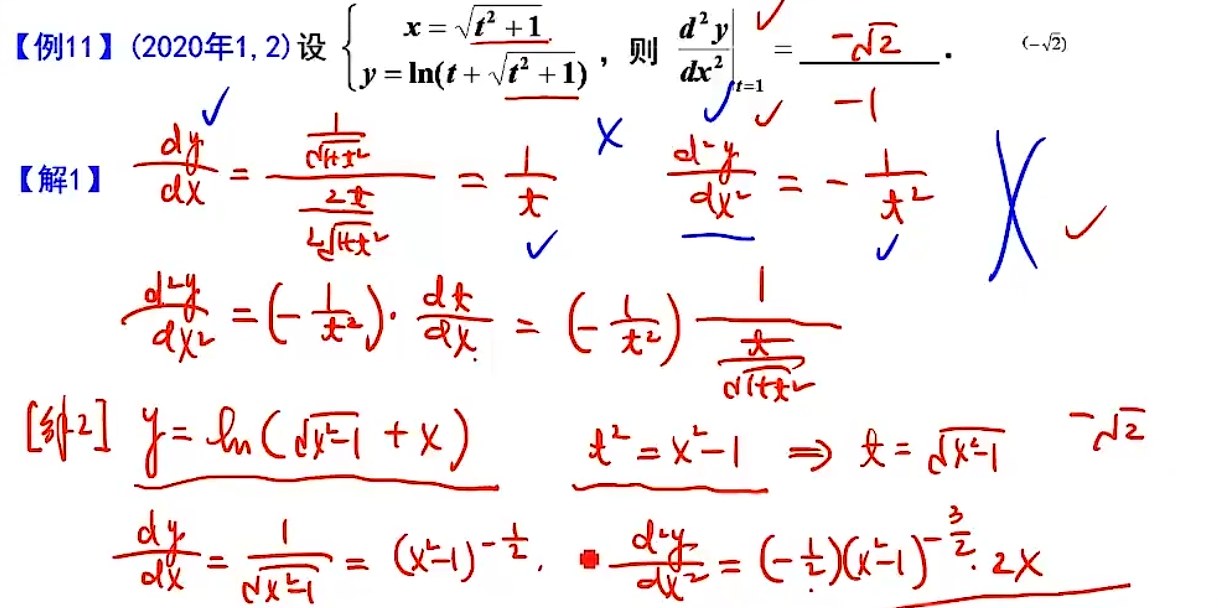 【例11】(2020年1,2)设 { x = √(t² + 1), y = ln(t + √(t² + 1)) , 则 d²y/dx² |_{t=1} = -√2 . (-√2)
-1
【解1】 dy/dx = (1/√(1+t²)) / (2t/(2√(1+t²))) = 1/t × d²y/dx² = - 1/t²
d²y/dx² = (- 1/t²) · dt/dx = (- 1/t²) 1/(t/√(1+t²))
[解2] y = ln(√(x²-1) + x) t² = x²-1 ⇒ t = √(x²-1) -√2
dy/dx = 1/√(x²-1) = (x²-1)^{-1/2} . d²y/dx² = (-1/2)(x²-1)^{-3/2} · 2x